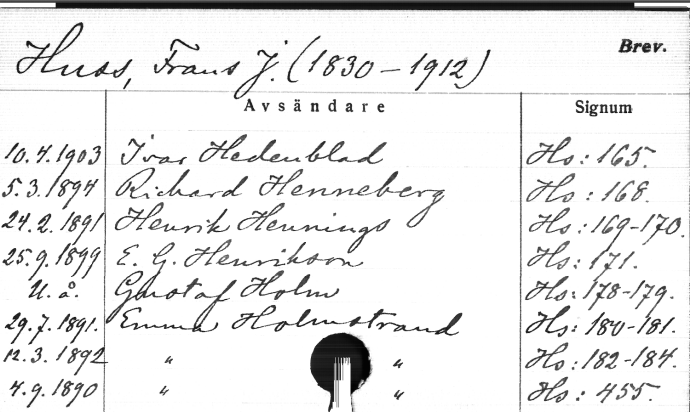 Huss, Frans J. (1830–1912) Brev.
Avsändare Signum
10.4.1903 Ivar Hedenblad Hs: 165.
5.3.1894 Richard Henneberg Hs: 168.
24.2.1891 Henrik Hennings Hs: 169-170.
25.9.1899 E. G. Henrikson Hs: 171.
U. å. Gustaf Holm Hs: 178-179.
29.7.1891. Emma Holmstrand Hs: 180-181.
12.3.1892 " " Hs: 182-184.
4.9.1890 " " Hs: 455.